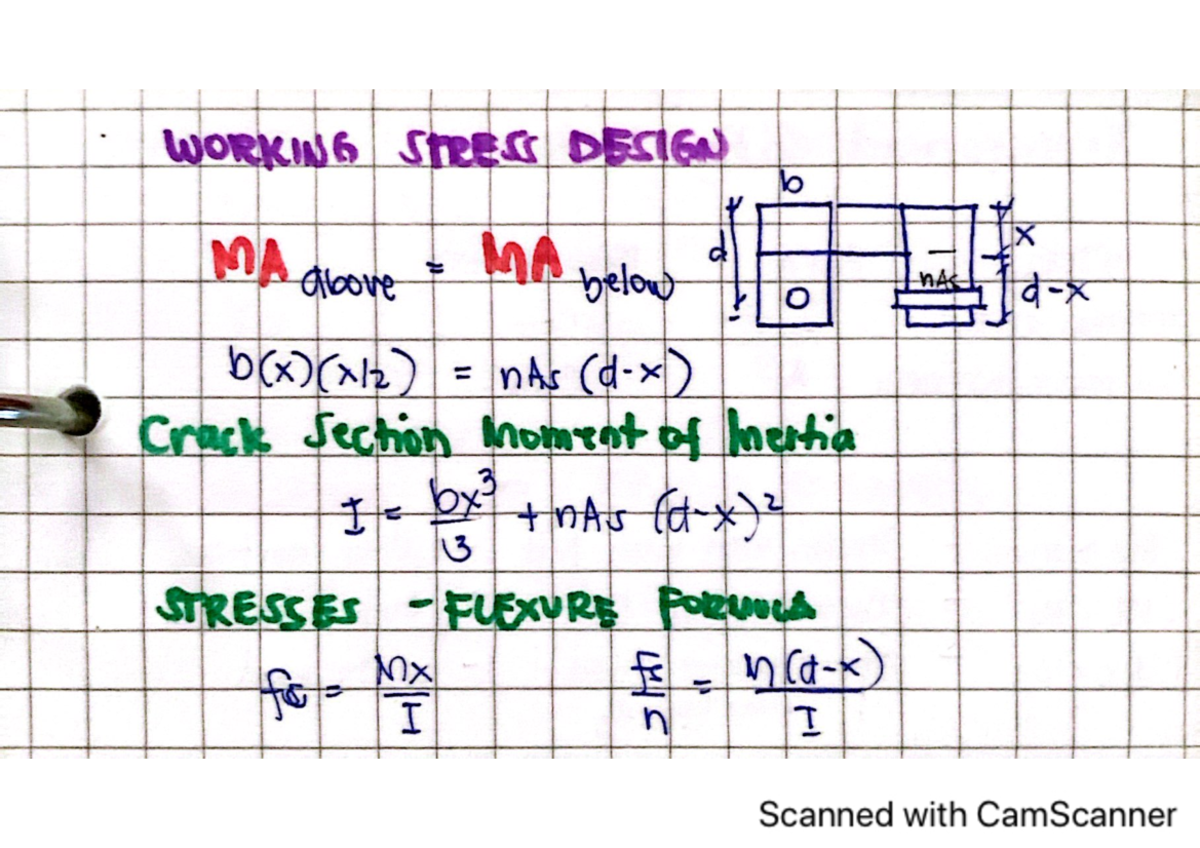 WORKING STRESS DESIGN
b
MA above = MA below
d
x
nAs
d-x
b(x)(x/2) = nAs (d-x)
Crack Section Moment of Inertia
I = bx³/3 + nAs (d-x)²
STRESSES - FLEXURE FORMULA
fc = Mx/I fs/n = M(d-x)/I
Scanned with CamScanner